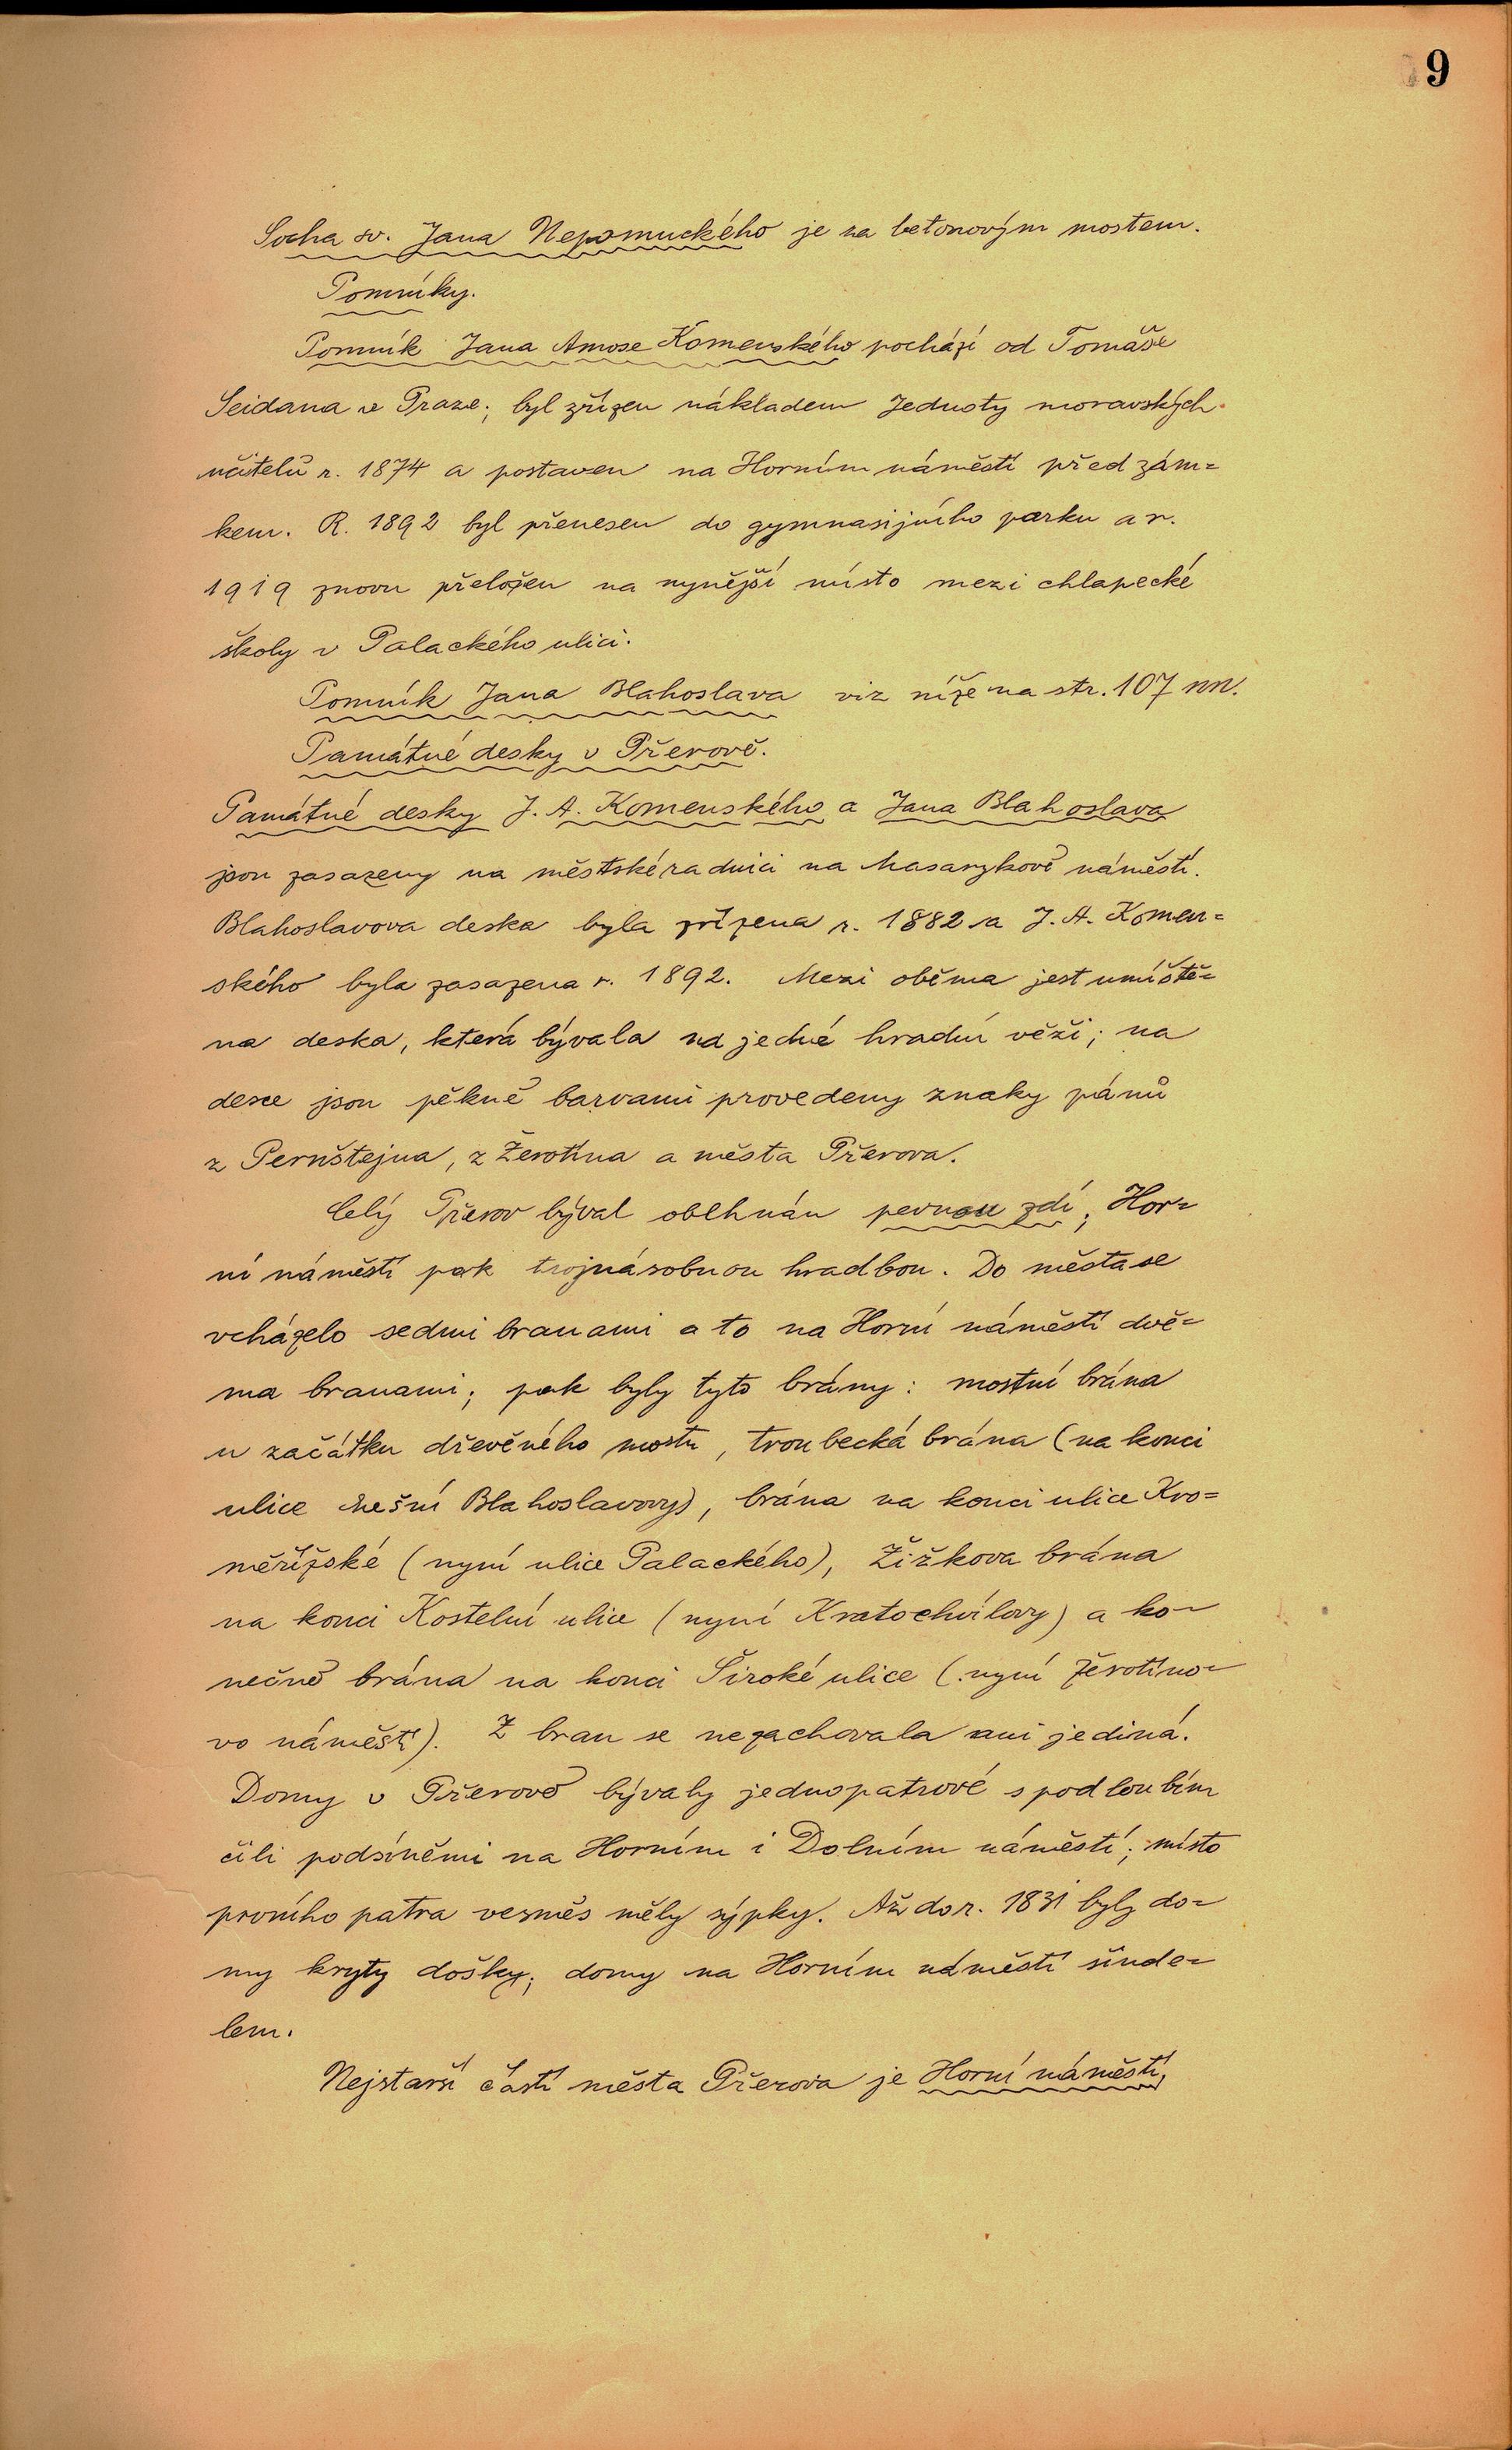 9
Socha sv. Jana Nepomuckého je za betonovým mostem.
Pomníky.
Pomník Jana Amose Komenského pochází od Tomáše
Seidana v Praze; byl zřízen nákladem Jednoty moravských
učitelů r. 1874 a postaven na Horním náměstí před zám=
kem. R. 1892 byl přenesen do gymnasijního parku a r.
1919 znovu přeložen na nynější místo mezi chlapecké
školy v Palackého ulici.
Pomník Jana Blahoslava viz níže na str. 107 nn.
Památné desky v Přerově.
Památné desky J. A. Komenského a Jana Blahoslava
jsou zasazeny na městské radnici na Masarykově náměstí.
Blahoslavova deska byla zřízena r. 1882 a J. A. Komen=
ského byla zasazena r. 1892. Mezi oběma jest umíště=
na deska, která bývala na jedné hradní věži; na
desce jsou pěkně barvami provedeny znaky pánů
z Pernštejna, z Žerotína a města Přerova.
Celý Přerov býval obehnán pevnou zdí; Hor=
ní náměstí pak trojnásobnou hradbou. Do města se
vcházelo sedmi branami a to na Horní náměstí dvě=
ma branami; pak byly tyto brány: mostní brána
u začátku dřevěného mostu, troubecká brána (na konci
ulice dnešní Blahoslavovy), brána na konci ulice Kro=
měřížské (nyní ulice Palackého), Žižkova brána
na konci Kostelní ulice (nyní Kratochvílovy) a ko-
nečně brána na konci Široké ulice (nyní Žerotíno-
vo náměstí). Z bran se nezachovala ani jediná.
Domy v Přerově bývaly jednopatrové s podloubím
čili podsíněmi na Horním i Dolním náměstí; místo
prvního patra vesměs měly sýpky. Až do r. 1831 byly do-
my kryty došky; domy na Horním náměstí šinde-
lem.
Nejstarší částí města Přerova je Horní náměstí,